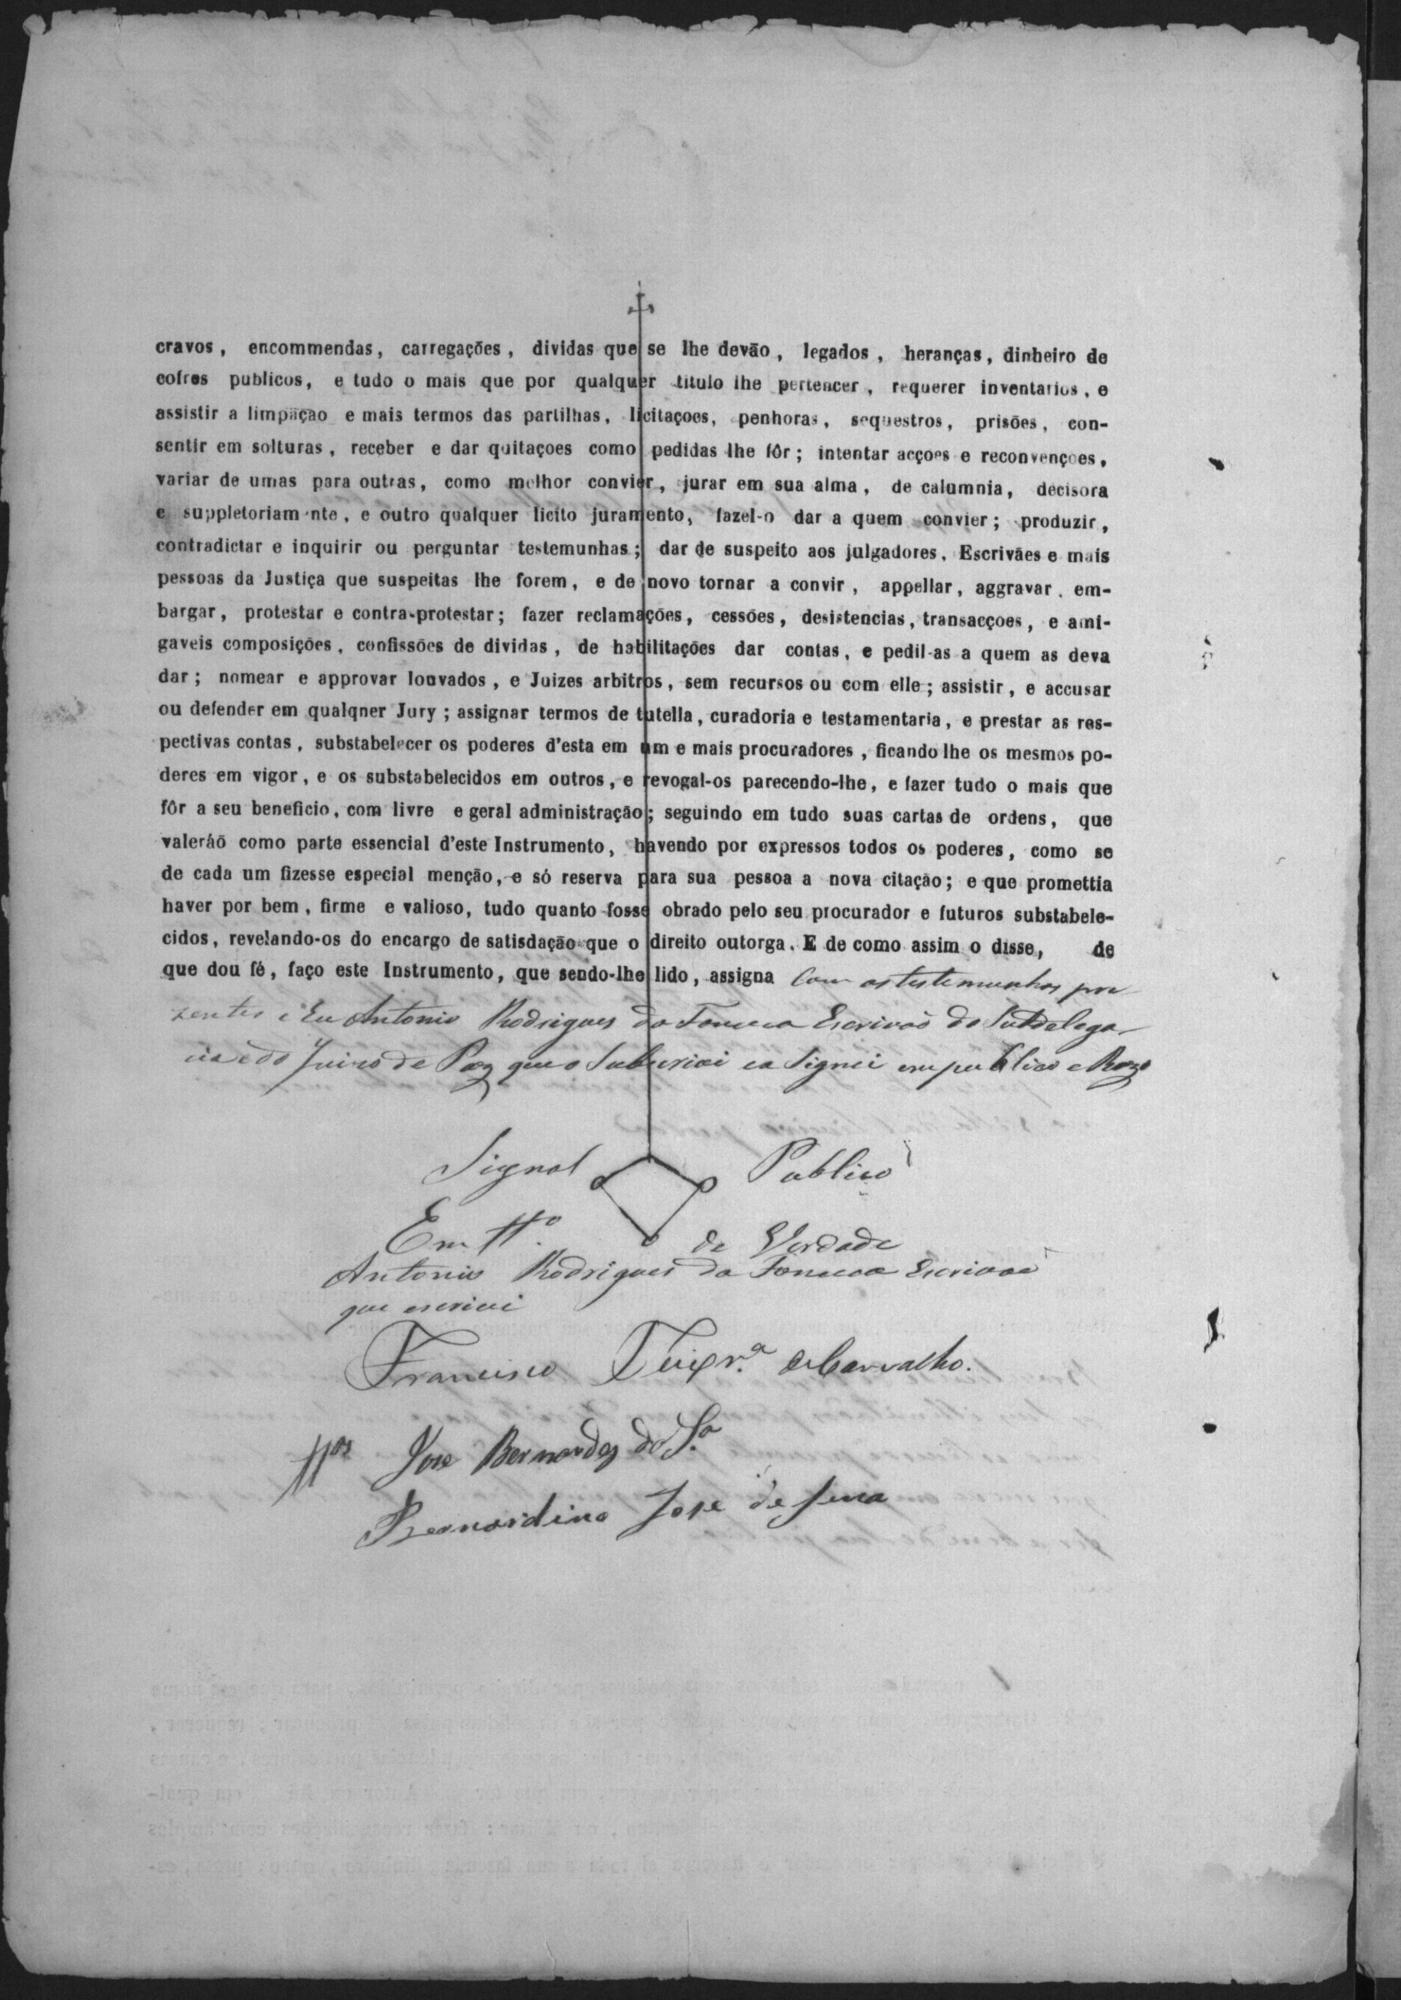 cravos, encommendas, carregações, dividas que se lhe devão, legados, heranças, dinheiro de
cofres publicos, e tudo o mais que por qualquer titulo lhe pertencer, requerer inventarios, e
assistir a limpação e mais termos das partilhas, licitaçoes, penhoras, sequestros, prisões, con-
sentir em solturas, receber e dar quitaçoes como pedidas lhe fôr; intentar acções e reconvençoes,
variar de umas para outras, como melhor convier, jurar em sua alma, de calumnia, decisora
e suppletoriamente, e outro qualquer licito juramento, fazel-o dar a quem convier; produzir,
contradictar e inquirir ou perguntar testemunhas; dar de suspeito aos julgadores, Escrivães e mais
pessoas da Justiça que suspeitas lhe forem, e de novo tornar a convir, appellar, aggravar, em-
bargar, protestar e contra-protestar; fazer reclamações, cessões, desistencias, transacçoes, e ami-
gaveis composições, confissões de dividas, de habilitações dar contas, e pedil-as a quem as deva
dar; nomear e approvar louvados, e Juizes arbitros, sem recursos ou com elle; assistir, e accusar
ou defender em qualqner Jury; assignar termos de tutella, curadoria e testamentaria, e prestar as res-
pectivas contas, substabelecer os poderes d'esta em um e mais procuradores, ficando lhe os mesmos po-
deres em vigor, e os substabelecidos em outros, e revogal-os parecendo-lhe, e fazer tudo o mais que
fôr a seu beneficio, com livre e geral administração; seguindo em tudo suas cartas de ordens, que
valeráõ como parte essencial d'este Instrumento, havendo por expressos todos os poderes, como se
de cada um fizesse especial menção, e só reserva para sua pessoa a nova citação; e que promettia
haver por bem, firme e valioso, tudo quanto fosse obrado pelo seu procurador e futuros substabele-
cidos, revelando-os do encargo de satisdação que o direito outorga. E de como assim o disse, de
que dou fé, faço este Instrumento, que sendo-lhe lido, assigna com as testemunhas pre
zentes e Eu Antonio Rodrigues da Fonseca Escrivaõ da Subdelega
cia e do Juizo de Paz que o Subscrivi e a Signei em publico e Razo
Signal Publico
Em tt.º de Verdade
Antonio Rodrigues da Fonseca Escrivaõ
que escrivi
Francisco Teixr.ª de Carvalho.
ttas Jose Bernardes da S.ª
Bernardino Jose de Sena